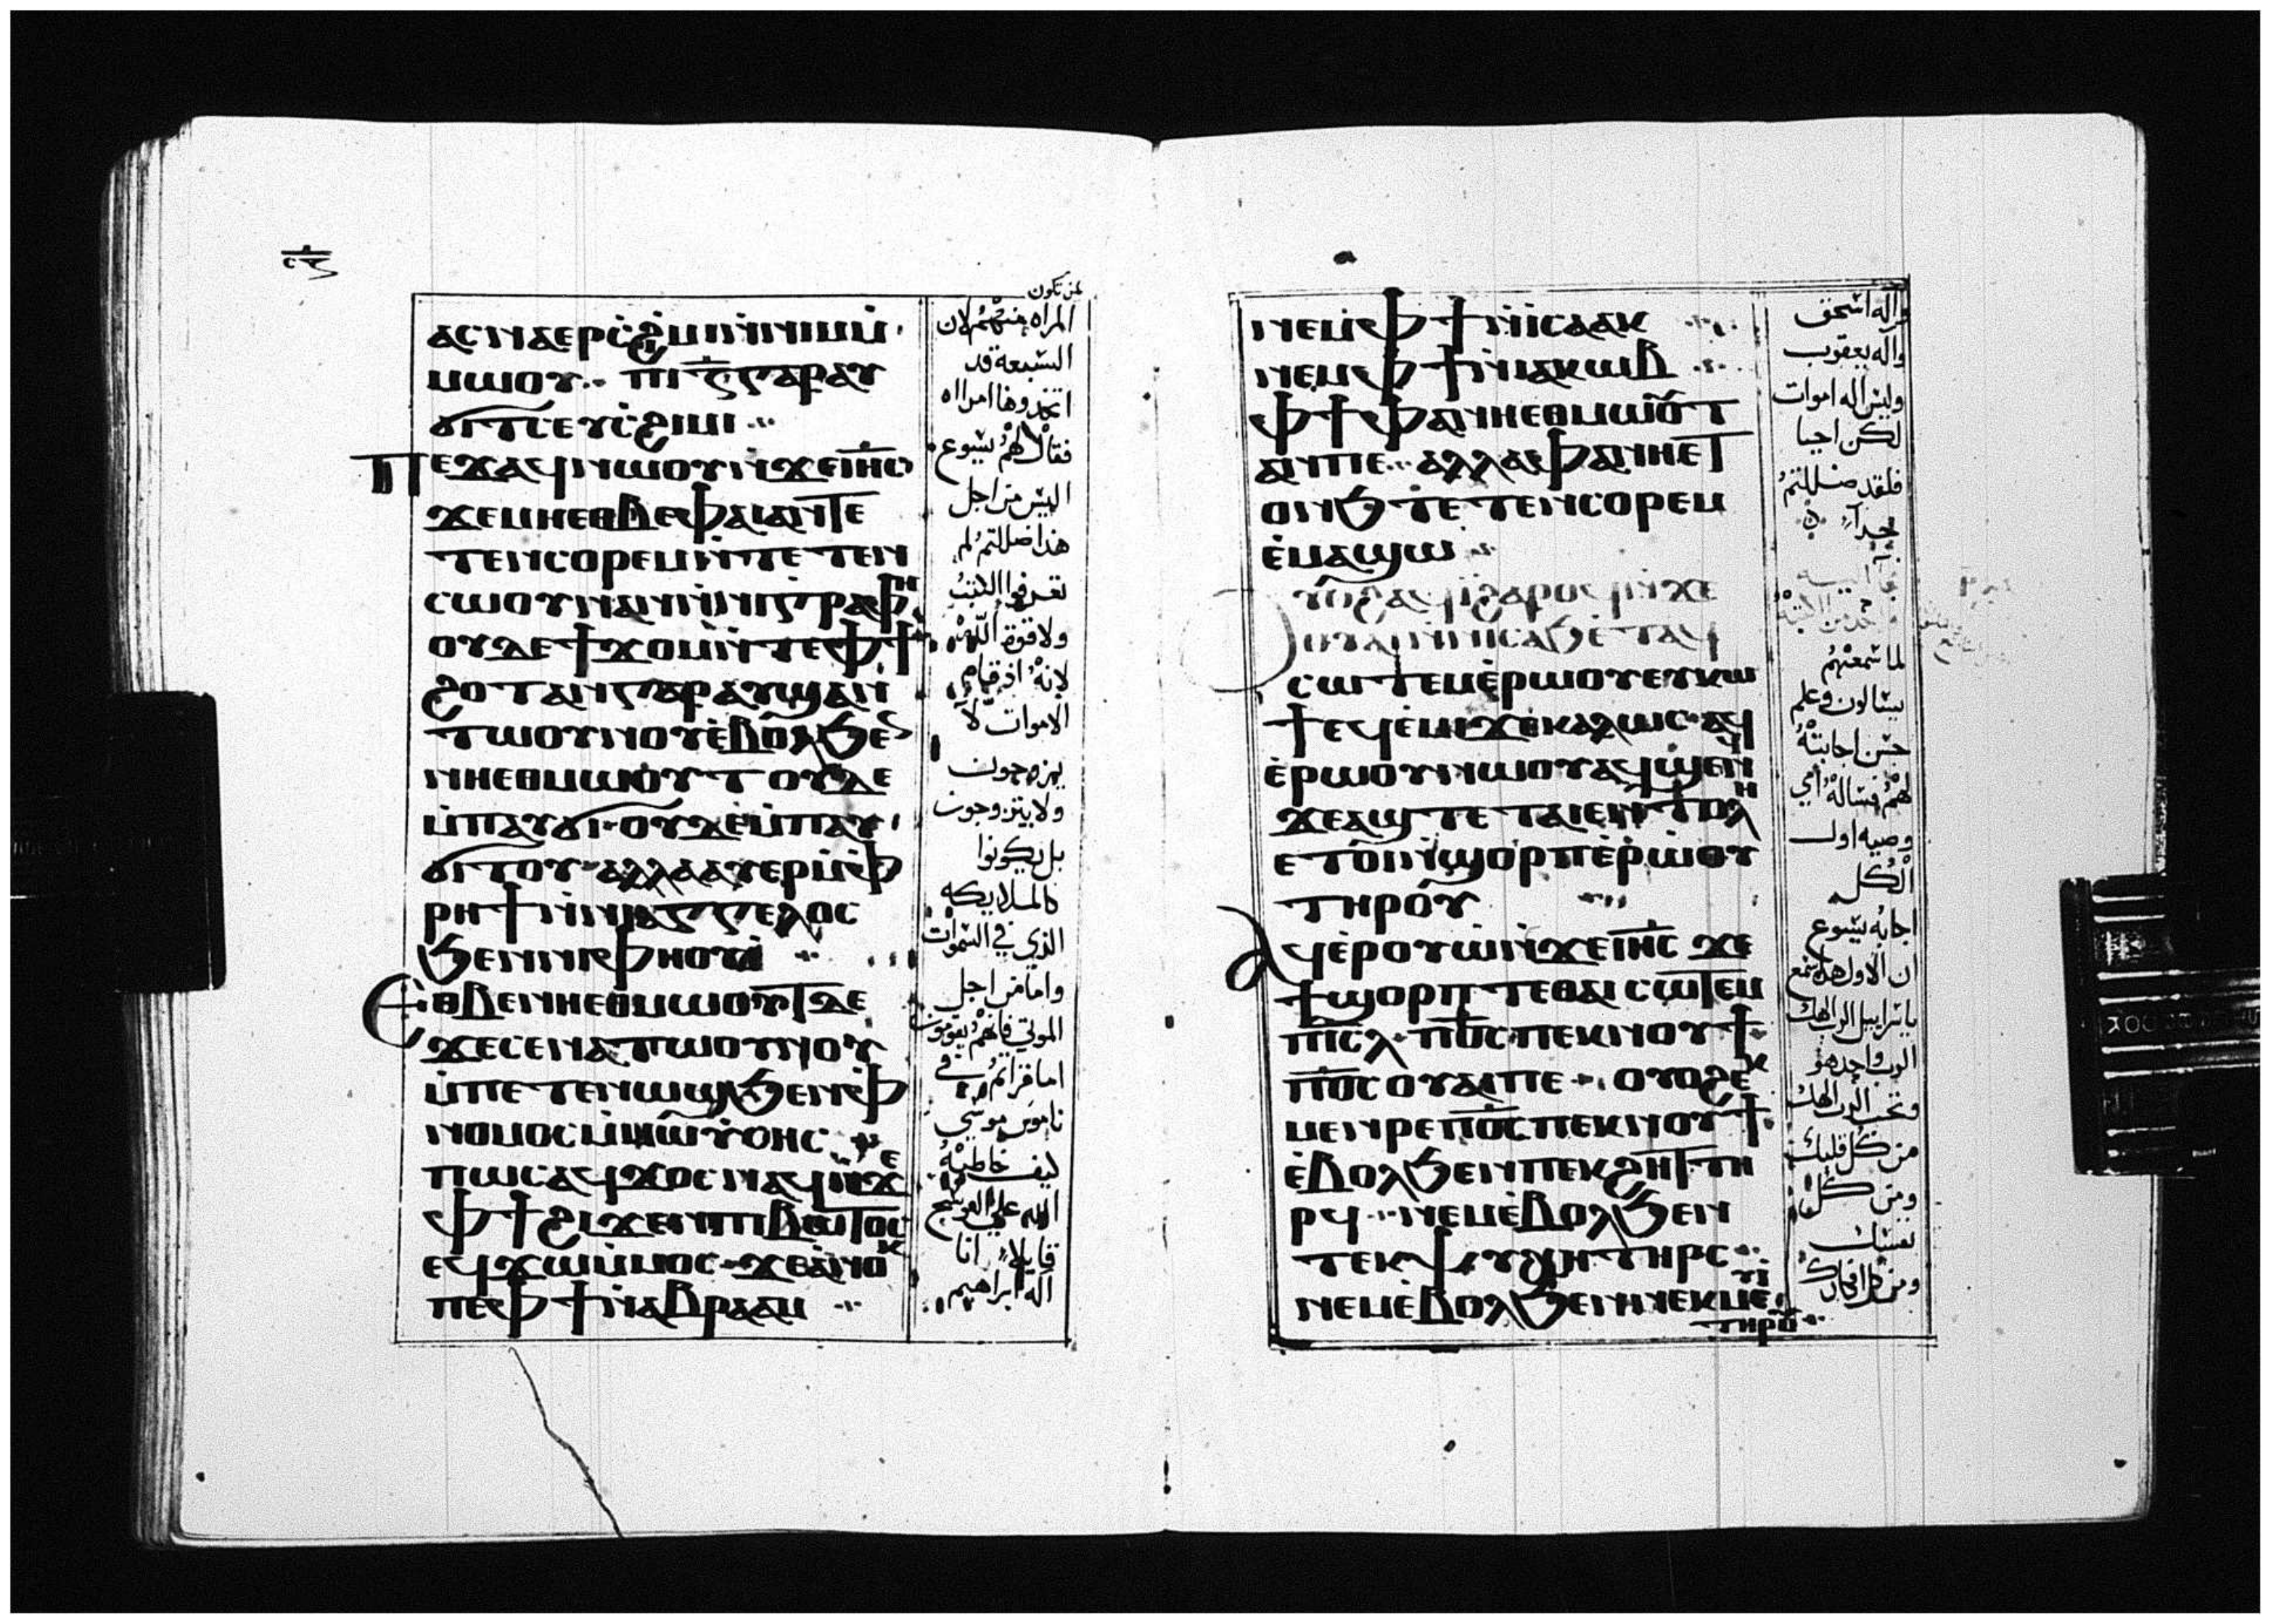 ⲁⲥⲛⲁⲉⲣⲥ̇ϩⲓⲙⲓⲛ̇ⲛⲓⲙⲙ̇
ⲙⲱⲟⲩ ⲡⲓⲍ̅ⲅⲁⲣⲁⲩ
ϭⲓⲧⲥⲉⲩⲥ̇ϩⲓⲙⲓ
ⲡⲉϫⲁϥⲛⲱⲟⲩⲛ̇ϫⲉⲓⲏ̅ⲥ
ϫⲉⲙⲏⲉⲑⲃⲉⲫⲁⲓⲁⲛⲧⲉ
ⲧⲉⲛⲥⲟⲣⲉⲙⲛ̇ⲧⲉⲧⲉⲛ
ⲥⲱⲟⲩⲛⲁⲛⲛ̇ⲛⲓⲅⲣⲁⲫⲏ
ⲟⲩⲇⲉϯϫⲟⲙⲛ̇ⲧⲉⲫϯ
ϩⲟⲧⲁⲛⲅⲁⲣⲁⲩϣⲁⲛ
ⲧⲱⲟⲩⲛⲟⲩⲉ̇ⲃⲟⲗϧⲉ
ⲛⲏⲉⲑⲙⲱⲟⲩⲧⲟⲩⲇⲉ
ⲙ̇ⲡⲁⲩϭⲓ ⲟⲩⲇⲉⲙ̇ⲡⲁⲩ
ϭⲓⲧⲟⲩ ⲁⲗⲗⲁⲁⲩⲉⲣⲙ̇ⲫ
ⲣⲏϯⲛ̇ⲛⲓⲁⲅⲅⲉⲗⲟⲥ
ϧⲉⲛⲛⲓⲫⲏⲟⲩⲓ̇
ⲉⲑⲃⲉⲛⲏⲉⲑⲙⲱⲟⲩⲧⲇⲉ
ϫⲉⲥⲉⲛⲁⲧⲱⲟⲩⲛⲟⲩ
ⲙ̇ⲡⲉⲧⲉⲛⲱϣϧⲉⲛⲫ
ⲛⲟⲙⲟⲥⲙ̇ⲙⲱⲩ̈ⲥⲏⲥ
ⲡⲱⲥⲁϥϫⲟⲥⲛⲁϥⲛ̇ϫⲉ
ⲫϯϩⲓϫⲉⲛⲡⲓⲃⲁⲧⲟⲥ
ⲉϥϫⲱⲙ̇ⲙⲟⲥ ϫⲉⲁ̇ⲛⲟⲕ
ⲡⲉⲫϯⲛ̇ⲁⲃⲣⲁⲁⲙ
لمن تكون
المراه منهم لان
السبعة قد
اتخذوها امراه
فقال لهم يسوع
اليس من اجل
هذا ضللتم لم
تعرفوا الكتب
ولا قوة الله
لانه اذ قيام
الاموات لا
يزوجون
ولا يتزوجون
بل يكونوا
كالملايكه
الذي في السموات
واما من اجل
الموتي فانهم يقومون
اما قراتم في
ناموس موسي
كيف خاطبه
الله علي العوسج
قايلا انا
اله ابراهيم
ⲛⲉⲙⲫϯⲛ̇ⲓⲥⲁⲁⲕ
ⲛⲉⲙⲫϯⲛ̇ⲓⲁⲕⲱⲃ
ⲫϯⲫⲁⲛⲏⲉⲑⲙⲱⲟⲩⲧ
ⲁⲛⲡⲉ ⲁⲗⲗⲁⲫⲁⲛⲏⲉⲧ
ⲟⲛϧ ⲧⲉⲧⲉⲛⲥⲟⲣⲉⲙ
ⲉ̇ⲙⲁϣⲱ
ⲟⲩⲟϩⲁϥⲓ̇ϩⲁⲣⲟϥⲛ̇ϫⲉ
ⲟⲩⲁⲓⲛ̇ⲛⲓⲥⲁϧⲉ̇ⲧⲁϥ
ⲥⲱⲧⲉⲙⲉ̇ⲣⲱⲟⲩⲉⲩⲕⲱ
ϯⲉϥⲉ̇ⲙⲓϫⲉⲕⲁⲗⲱⲥ ⲁϥ
ⲉ̇ⲣⲱⲟⲩⲛⲱⲟⲩⲁϥϣⲉⲛϥ
ϫⲉⲁϣⲧⲉⲧⲁⲓⲉⲛⲧⲟⲗⲏ
ⲉⲧⲟⲓⲛ̇ϣⲟⲣⲡⲉ̇ⲣⲱⲟⲩ
ⲧⲏⲣⲟⲩ
ⲁϥⲉ̇ⲣⲟⲩⲱ̇ⲛ̇ϫⲉⲓⲏ̅ⲥ ϫⲉ
ϯϣⲟⲣⲡ ⲧⲉⲑⲁⲓ ⲥⲱⲧⲉⲙ
ⲡⲓ̅ⲥⲗ ⲡ̅ⲟ̅ⲥ ⲡⲉⲕⲛⲟⲩϯ
ⲡ̅ⲟ̅ⲥ ⲟⲩⲁⲓⲡⲉ ⲟⲩⲟϩⲉⲕ
ⲙⲉⲛⲣⲉⲡ̅ⲟ̅ⲥ ⲡⲉⲕⲛⲟⲩϯ
ⲉ̇ⲃⲟⲗϧⲉⲛⲡⲉⲕϩⲏⲧⲧⲏ
ⲣϥ ⲛⲉⲙⲉ̇ⲃⲟⲗϧⲉⲛ
ⲧⲉⲕⲯⲩⲭⲏⲧⲏⲣⲥ
ⲛⲉⲙⲉ̇ⲃⲟⲗϧⲉⲛⲛⲉⲕⲙⲉⲩⲓ
ⲧⲏⲣⲟⲩ
واله اسحق
واله يعقوب
وليس اله اموات
لكن احيا
فلقد ضللتم
جدا
لما سمعهم
يسالون وعلم
حسن اجابته
لهم فساله اي
وصيه اول
الكل
اجابه يسوع
ان الاول هذا اسمع
يا سراييل الرب الهك
الرب واحد هو
وتحب الرب الهك
من كل قلبك
ومن كل
نفسك
ومن كل افكارك